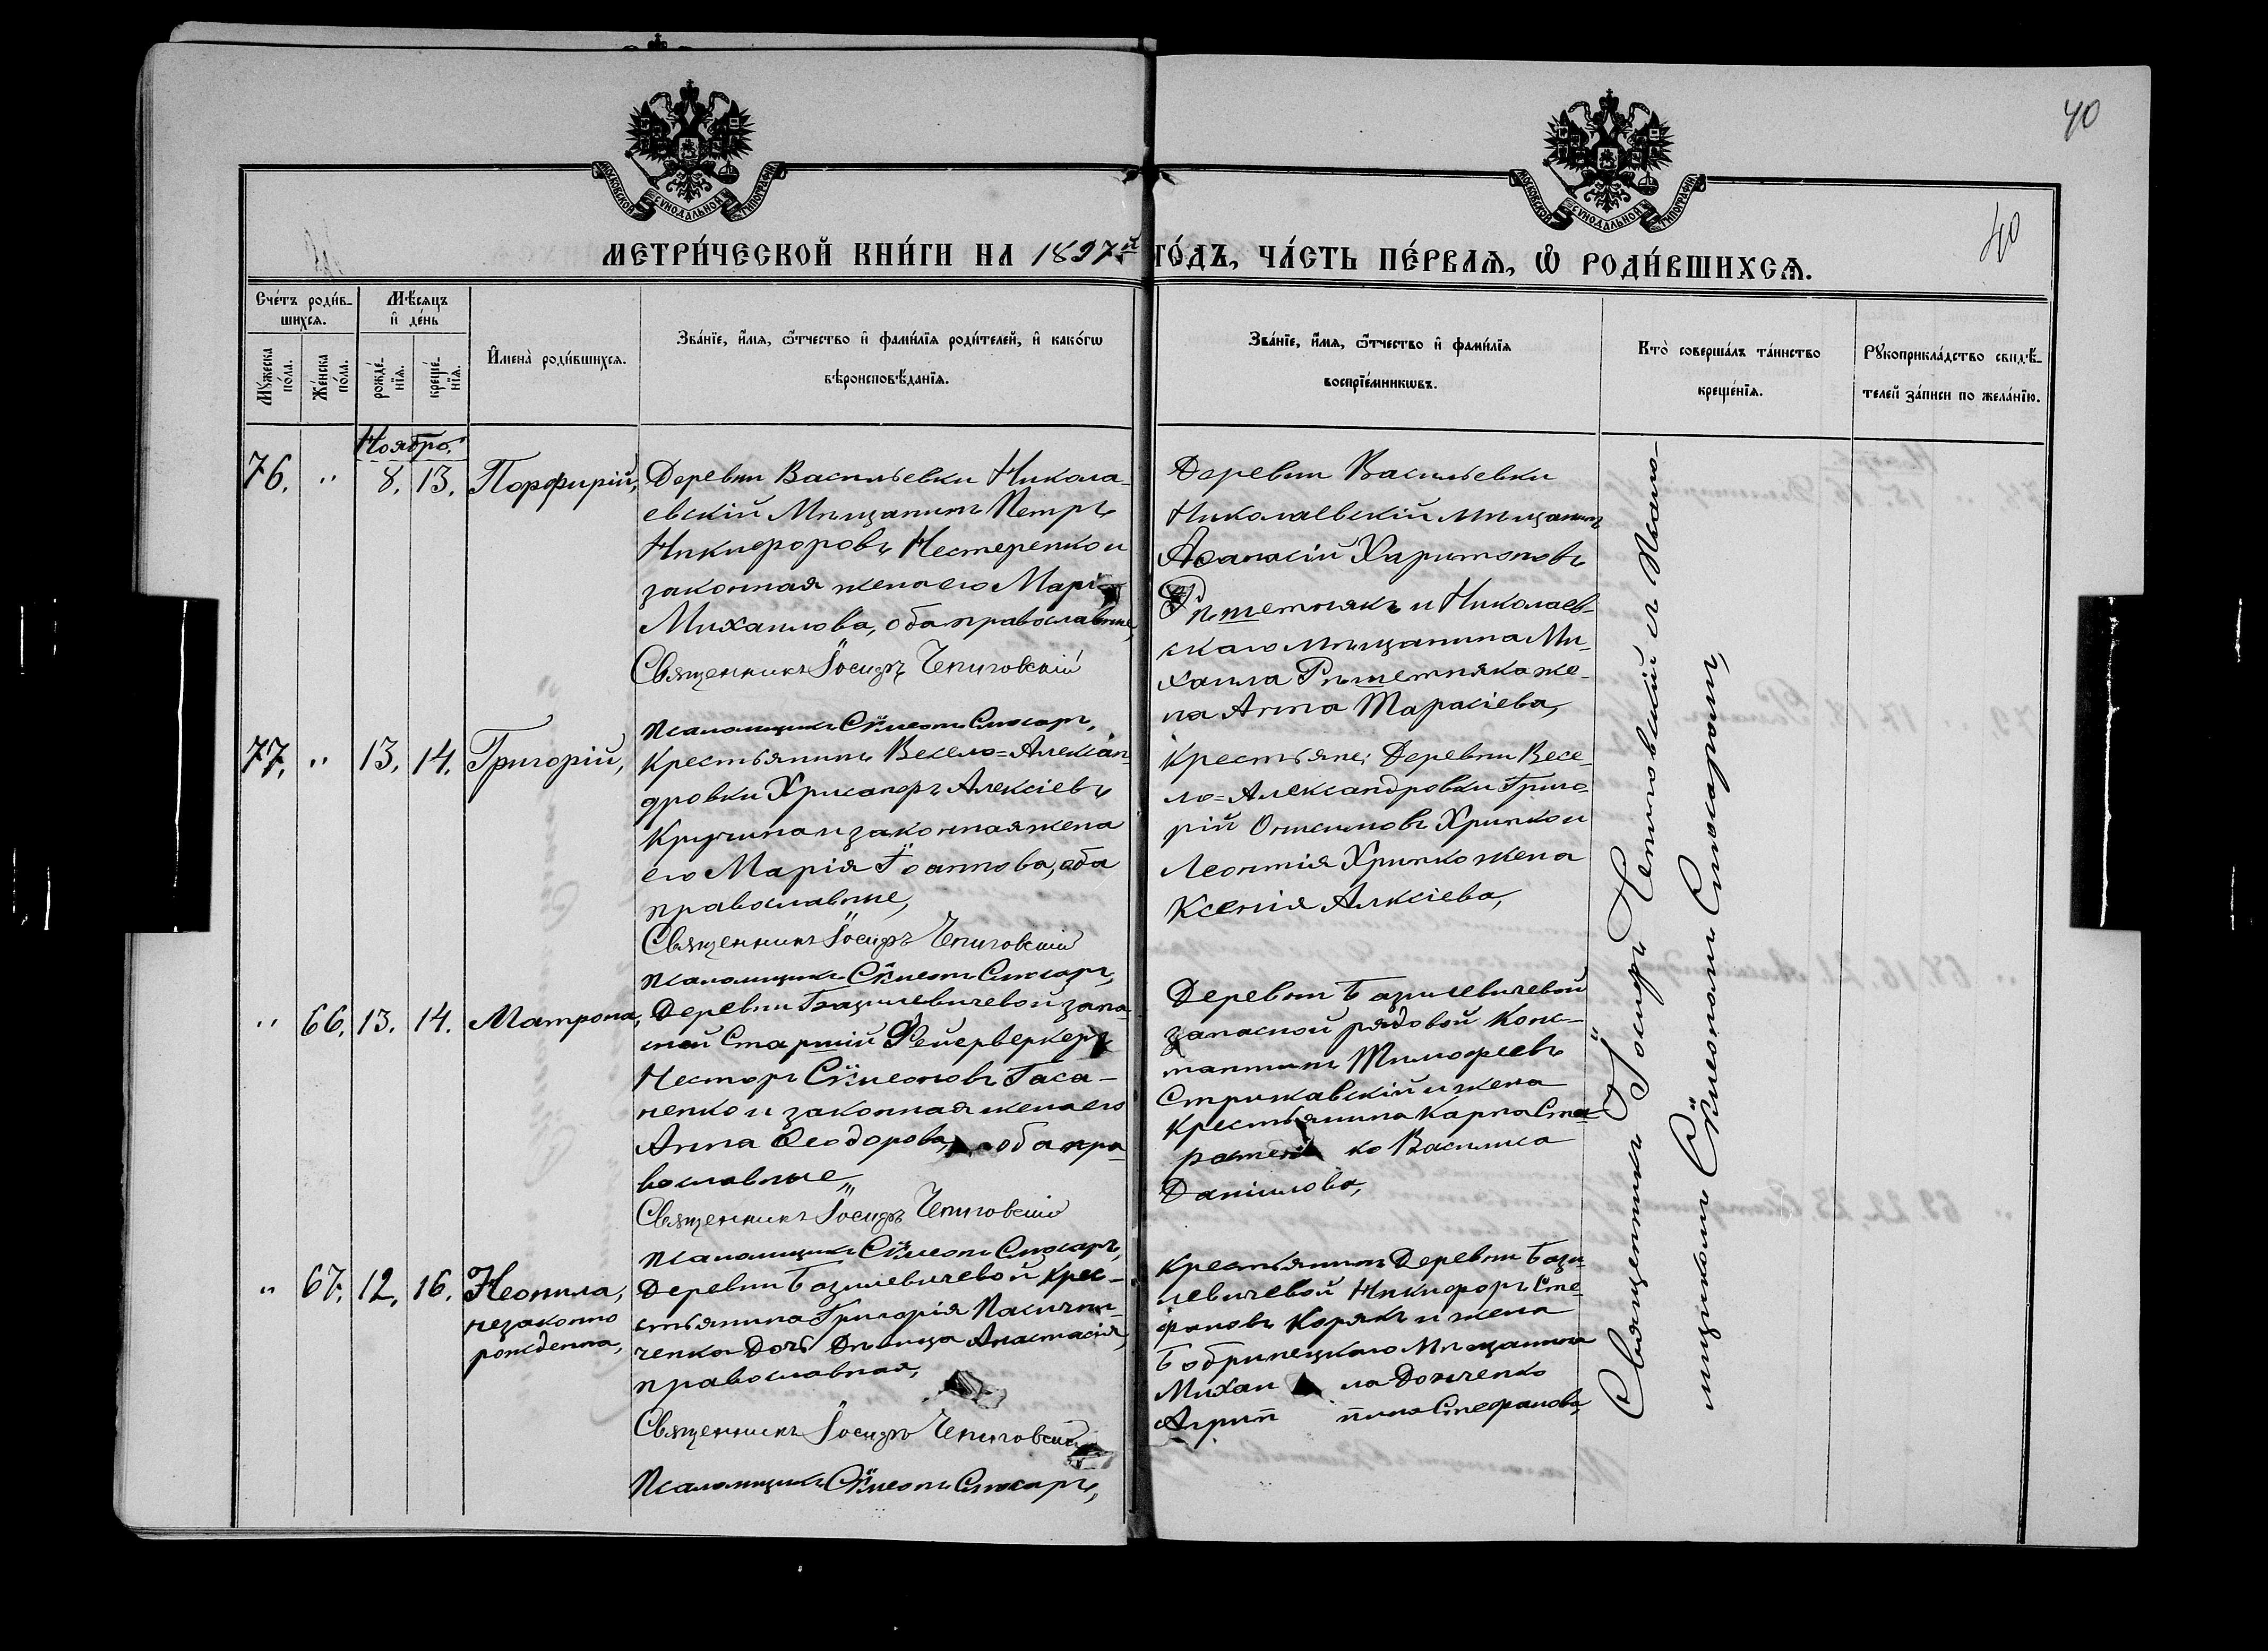 40
МОСКОВСКОЙ СѴНОДАЛЬНОЙ ТИПОГРАФІИ
МОСКОВСКОЙ СѴНОДАЛЬНОЙ ТИПОГРАФІИ
40
МЕТРИ́ЧЕСКОЙ КНИ́ГИ НА 1897й ГО́ДЪ, ЧА́СТЬ ПЕ́РВАѦ, Ѡ РОДИ́ВШИХСѦ.
Сче́тъ роди́в-
шихсѧ.
Мꙋ́жеска по́ла.
Же́нска по́ла.
Мѣ́сяцъ
и҆ де́нь
рожде́нїѧ.
креще́нїѧ.
И҆мена̀ роди́вшихсѧ.
Зва́нїе, и҆́мѧ, ѻ҆́тчество и҆ фами́лїѧ роди́телей, и҆ како́гѡ
вѣроисповѣ́данїѧ.
Зва́нїе, и҆́мѧ, ѻ҆́тчество и҆ фами́лїѧ
воспрїе́мникѡвъ.
Кто̀ соверша́лъ та́инство
креще́нїѧ.
Рꙋкоприкла́дство свидѣ́-
телей за́писи по жела́нїю.
Ноябрь.
76. " 8. 13. Порфирій,
Деревни Васильевки Никола-
евскій Мѣщанинъ Петръ
Никифоровъ Нестеренко и
законная жена его Марія
Михаилова, оба православные,
Священникъ Іосифъ Чепиговскій
Псаломщикъ Сѷмеонъ Слюсарь,
Деревни Васильевки
Николаевскій мѣщанинъ
Аѳанасій Харитоновъ
Рѣшетнякъ и Николаев-
скаго мѣщанина Ми-
хаила Рѣшетняка же-
на Анна Тарасіева,
77. " 13. 14. Григорій,
Крестьянинъ Весело=Алексан-
дровки Хрисанфъ Алексіевъ
Кручина и законная жена
его Марія Іоаннова, оба
православные,
Священникъ Іосифъ Чепиговскій
Псаломщикъ Сѷмеонъ Слюсарь,
Крестьяне: Деревни Весе-
ло=Александровки Григо-
рій Онисимовъ Хрипко и
Леонтія Хрипко жена
Ксенія Алксіева,
" 66. 13. 14. Матрона,
Деревни Базилевичевой запа-
сной Старшій Фейерверкеръ
Несторъ Сѷмеоновъ Гаса-
ненко и законная жена его
Анна Ѳеодорова, оба пра-
вославные,
Священникъ Іосифъ Чепиговскій
Псаломщикъ Сѷмеонъ Слюсарь,
Деревни Базилевичевой
запасной рядовой Конс-
тантинъ Тимофеевъ
Стрижавскій и жена
Крестьянина Карпа Ста-
ко Василиса
Даніилова,
" 67. 12. 16. Неонила,
незаконно
рожденна,
Деревни Базилевичевой Крес-
стьянина Григорія Пасични-
ченка Дочь Дѣвица Анастасія,
православная,
Священникъ Іосифъ Чепиговскій
Псаломщикъ Сѷмеонъ Слюсарь,
Крестьянинъ Деревни Бази-
левичевой Никифоръ Сте-
фановъ Корякъ и жена
Бобринецкаго Мѣщанина
Михаи ла Донченко
Агрип пина Стефанова,
Священникъ Іосифъ Чепиговскій и Псало-
мщикомъ Сѷмеономъ Слюсаремъ,